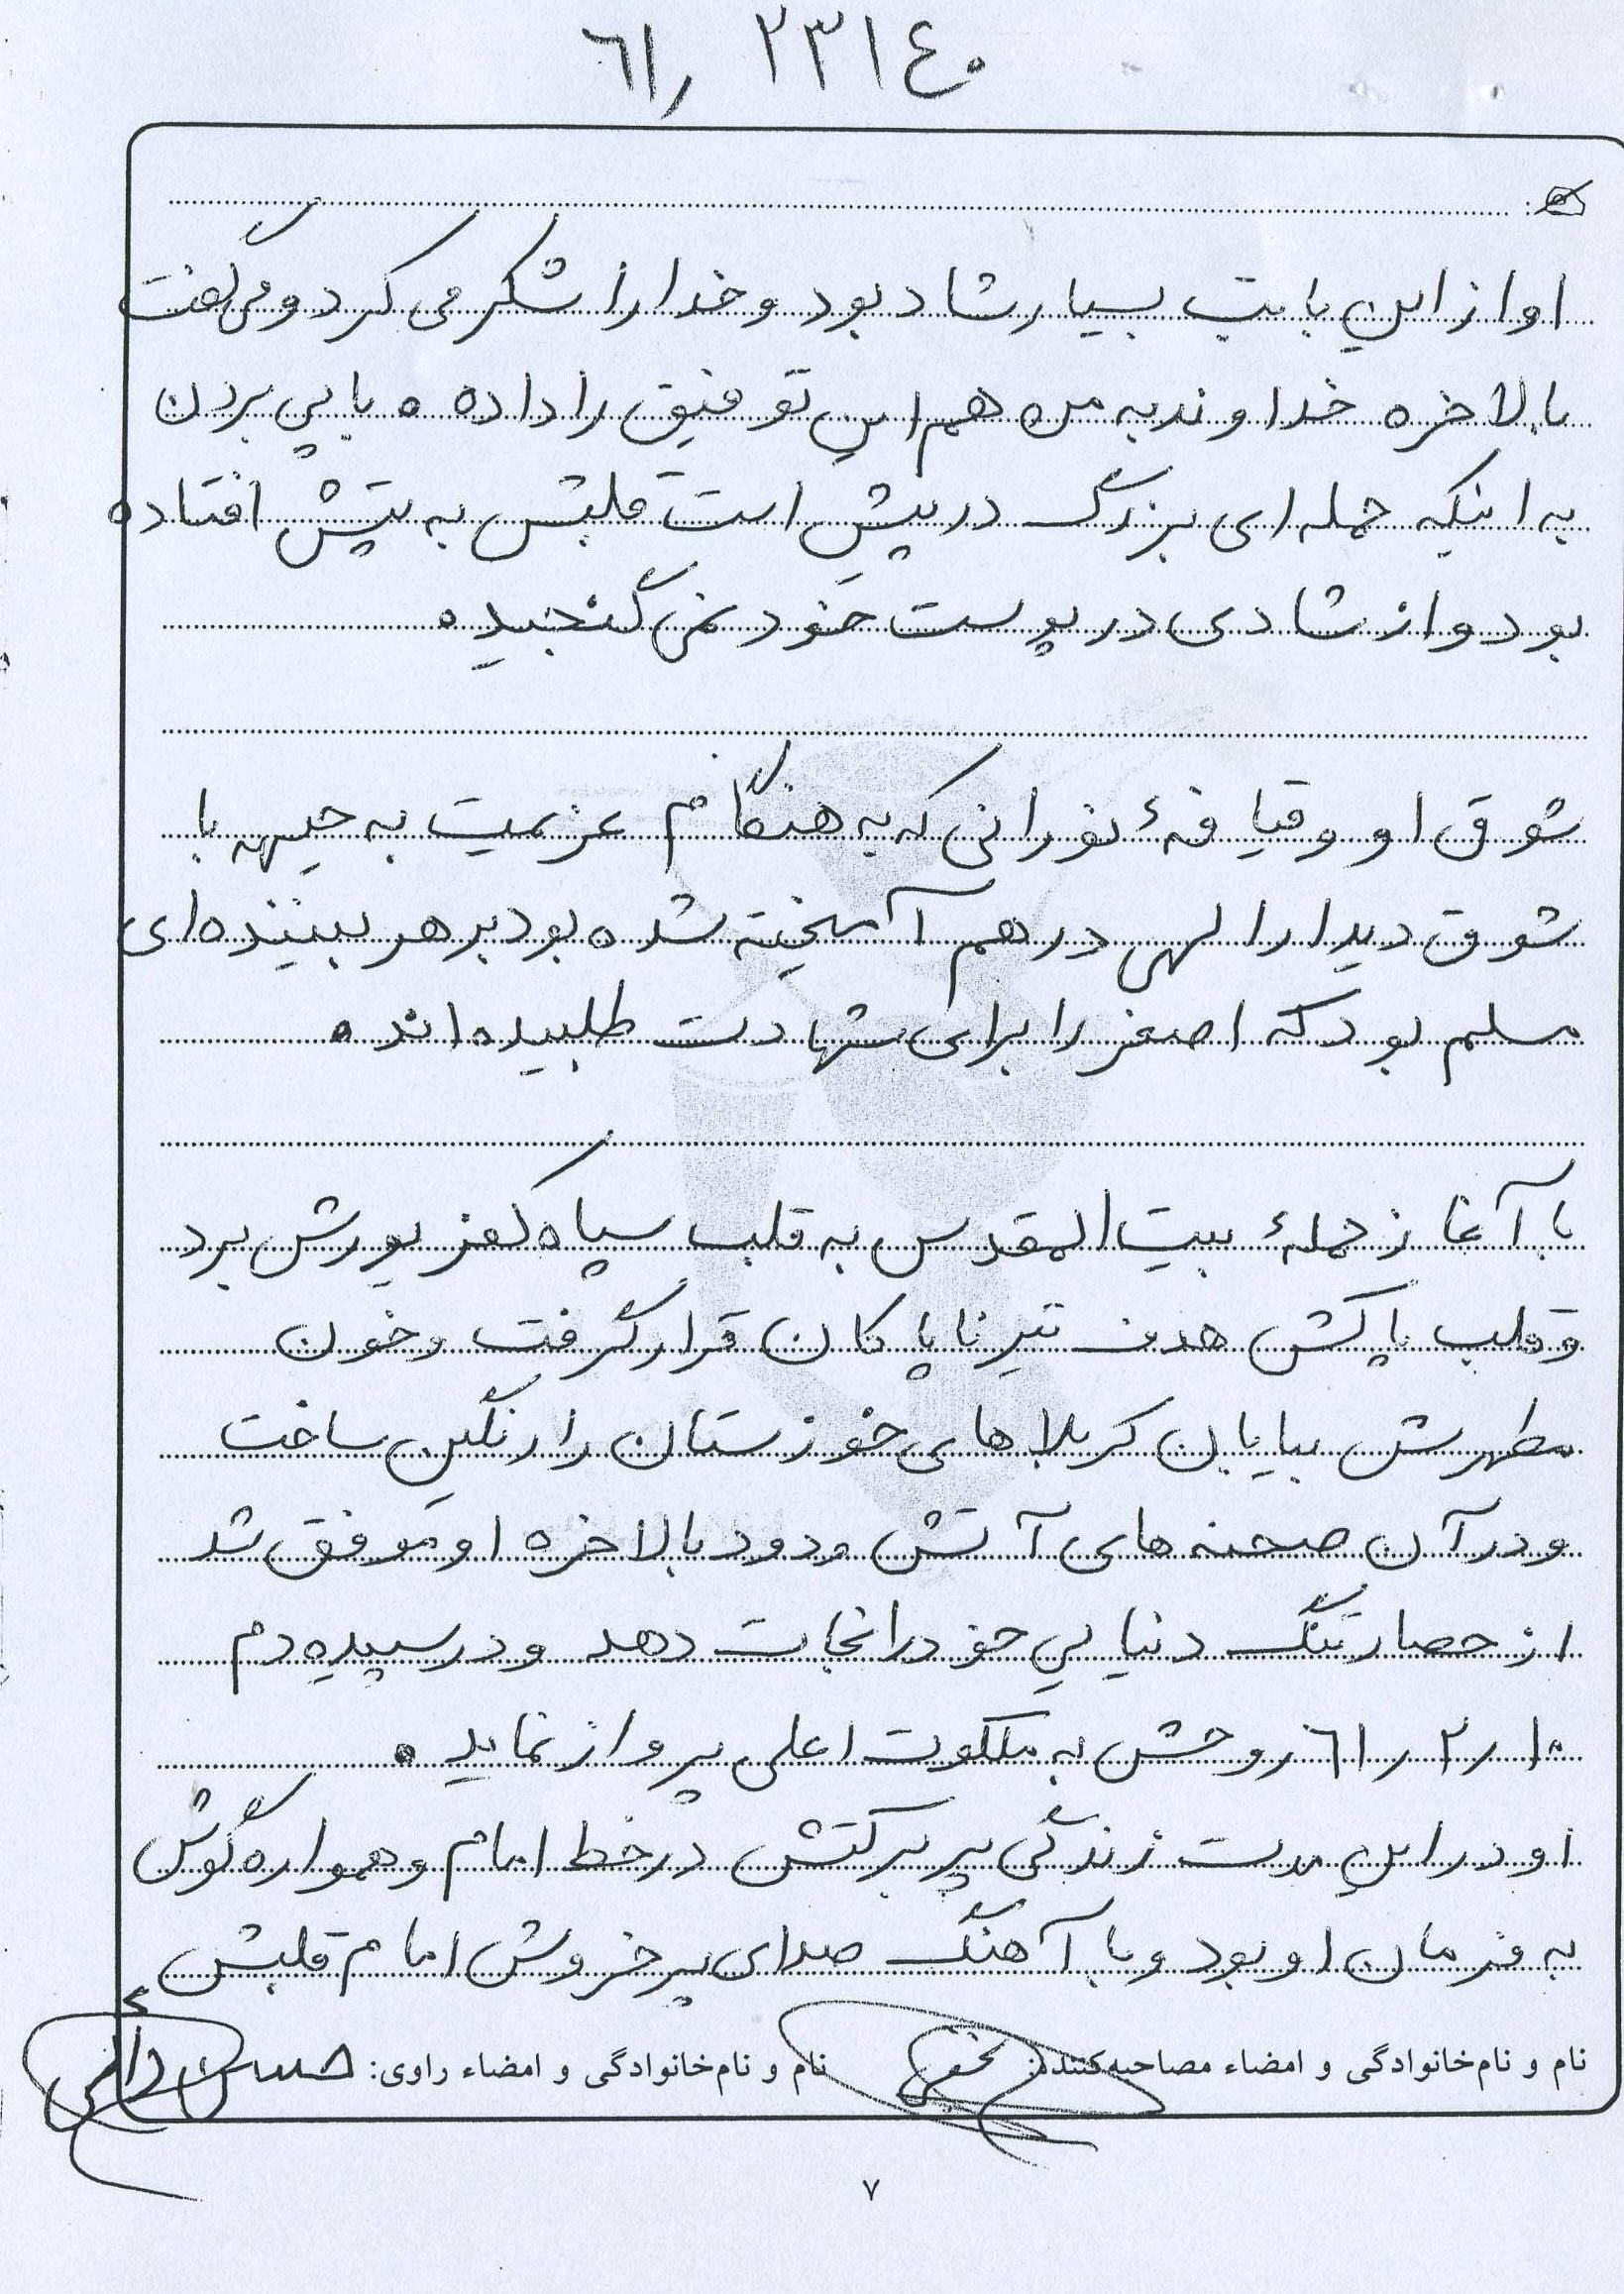 ٦١ر ٢٣١٤٠
او از این بابت بسیار شاد بود و خدا را شکر می کرد و می گفت
بالاخره خداوند به من هم این توفیق را داده ۰ با پی بردن
به اینکه حمله ای بزرگ در پیش است قلبش به تپش افتاده
بود و از شادی در پوست خود نمی گنجید ۰
شوق او و قیافهٔ نورانی که به هنگام عزیمت به جبهه با
شوق دیدار الهی در هم آمیخته شده بود بر هر بیننده ای
مسلم بود که اصغر را برای شهادت طلبیده اند ۰
با آغاز حملهٔ بیت المقدس به قلب سپاه کفر یورش برد
و قلب پاکش هدف تیر ناپاکان قرار گرفت و خون
مطهرش بیابان کربلاهای خوزستان را رنگین ساخت
و در آن صحنه های آتش و دود بالاخره او موفق شد
از حصار تنگ دنیایی خود را نجات دهد و در سپیده دم
١٠ر٢ر٦١ روحش به ملکوت اعلی پرواز نماید ۰
او در این مدت زندگی پر برکتش در خط امام و همواره گوش
به فرمان او بود و با آهنگ صدای پر خروش امام قلبش
نام و نام‌خانوادگی و امضاء مصاحبه‌کننده: نام و نام‌خانوادگی و امضاء راوی: حسن
٧